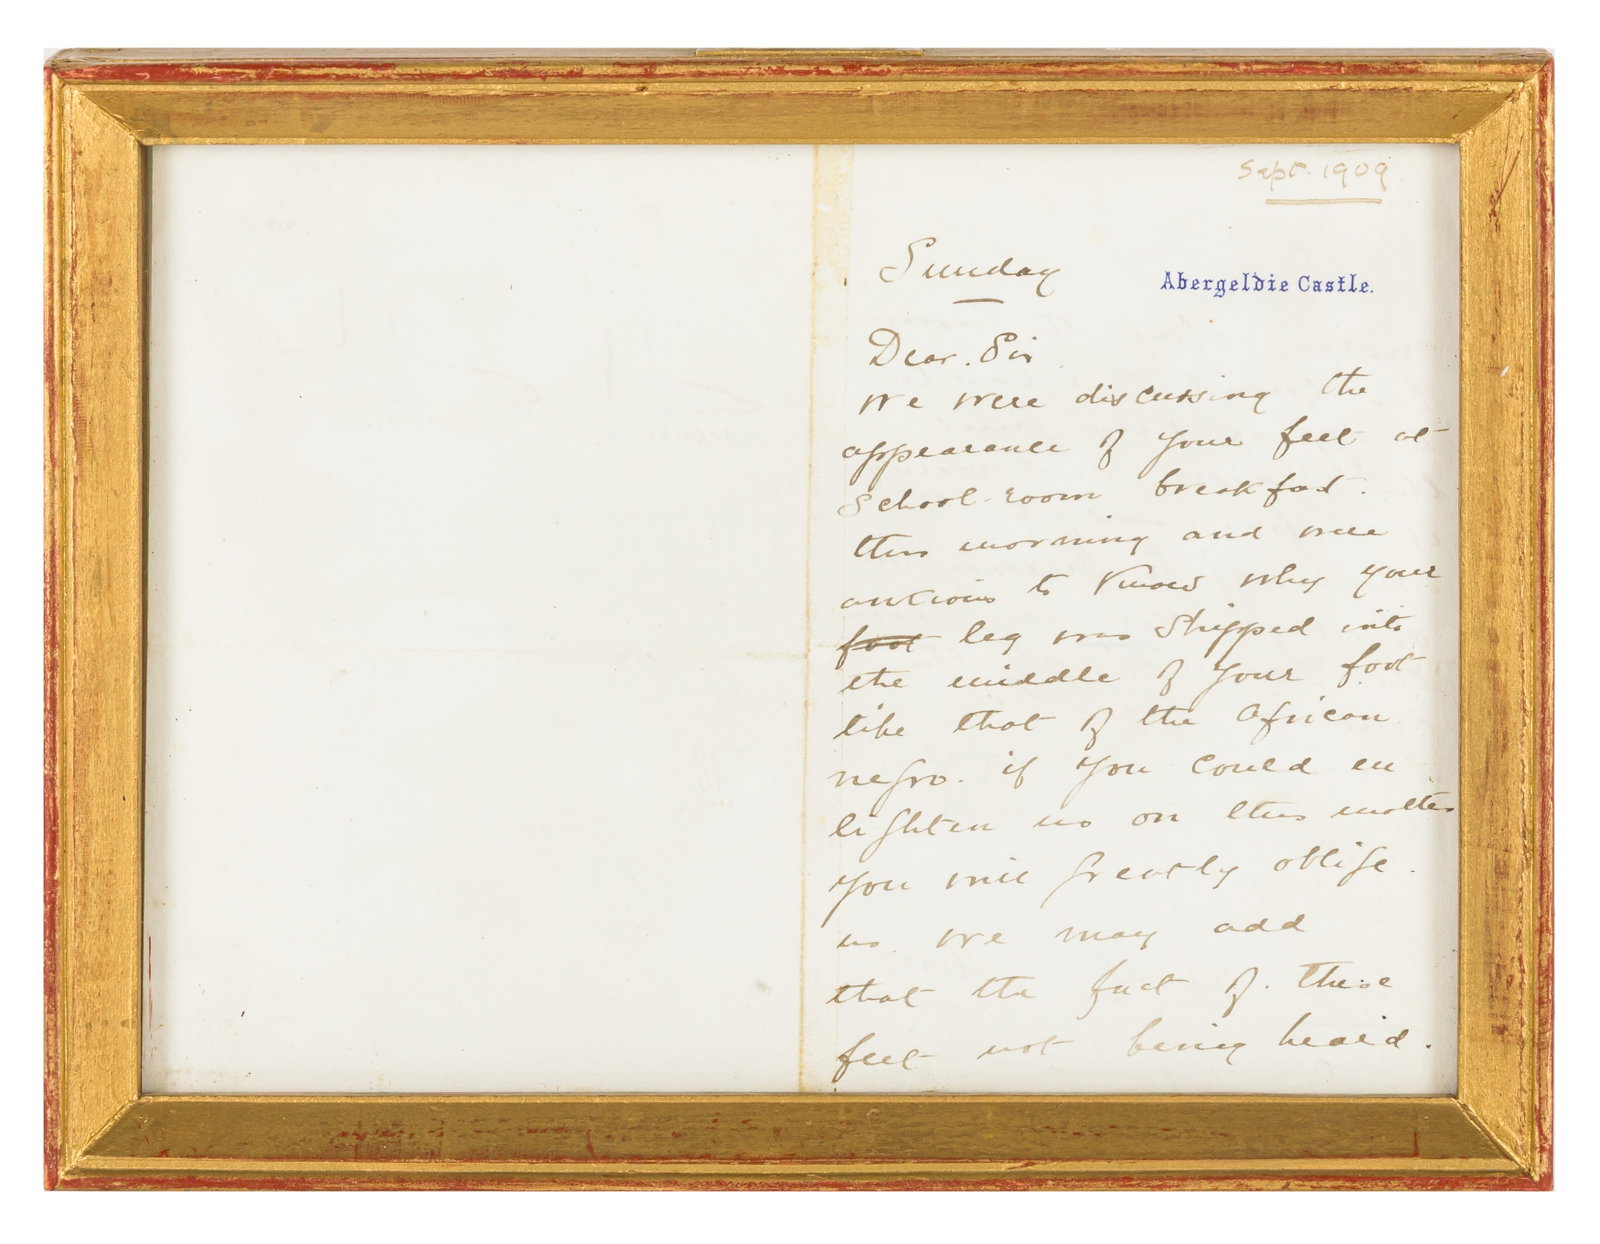 Sept. 1909
Sunday
Abergeldie Castle.
Dear Sir
We were discussing the
appearance of your feet at
School-room breakfast.
this morning and were
anxious to know why your
foot leg was shipped into
the middle of your foot
like that of the African
negro. if you could en
lighten us on this matter
you will greatly oblige.
us. We may add
that the fact of. these
feet not being heard.